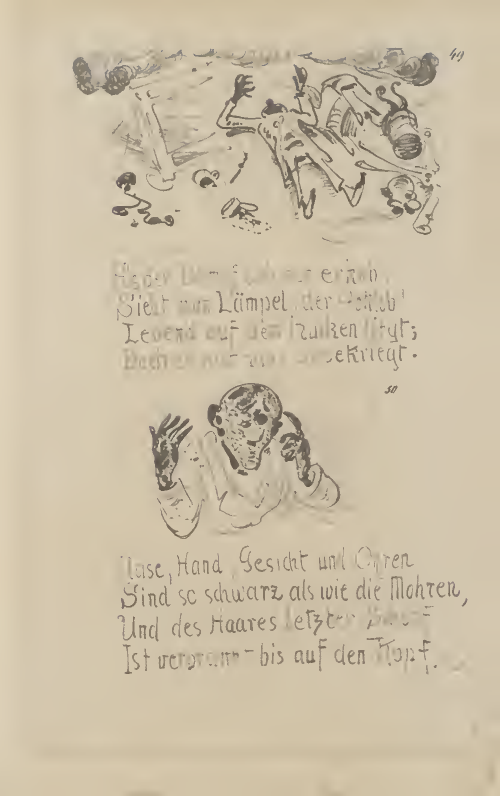 49
Als der Dampf sich nun erhob,
Sieht man Lämpel, der
Lebend auf dem Rücken liegt;
Doch er hat was abgekriegt.
50
Nase, Hand, Gesicht und Ohren
Sind so schwarz als wie die Mohren,
Und des Haares letzter Schopf
Ist verbrannt bis auf den Kopf.